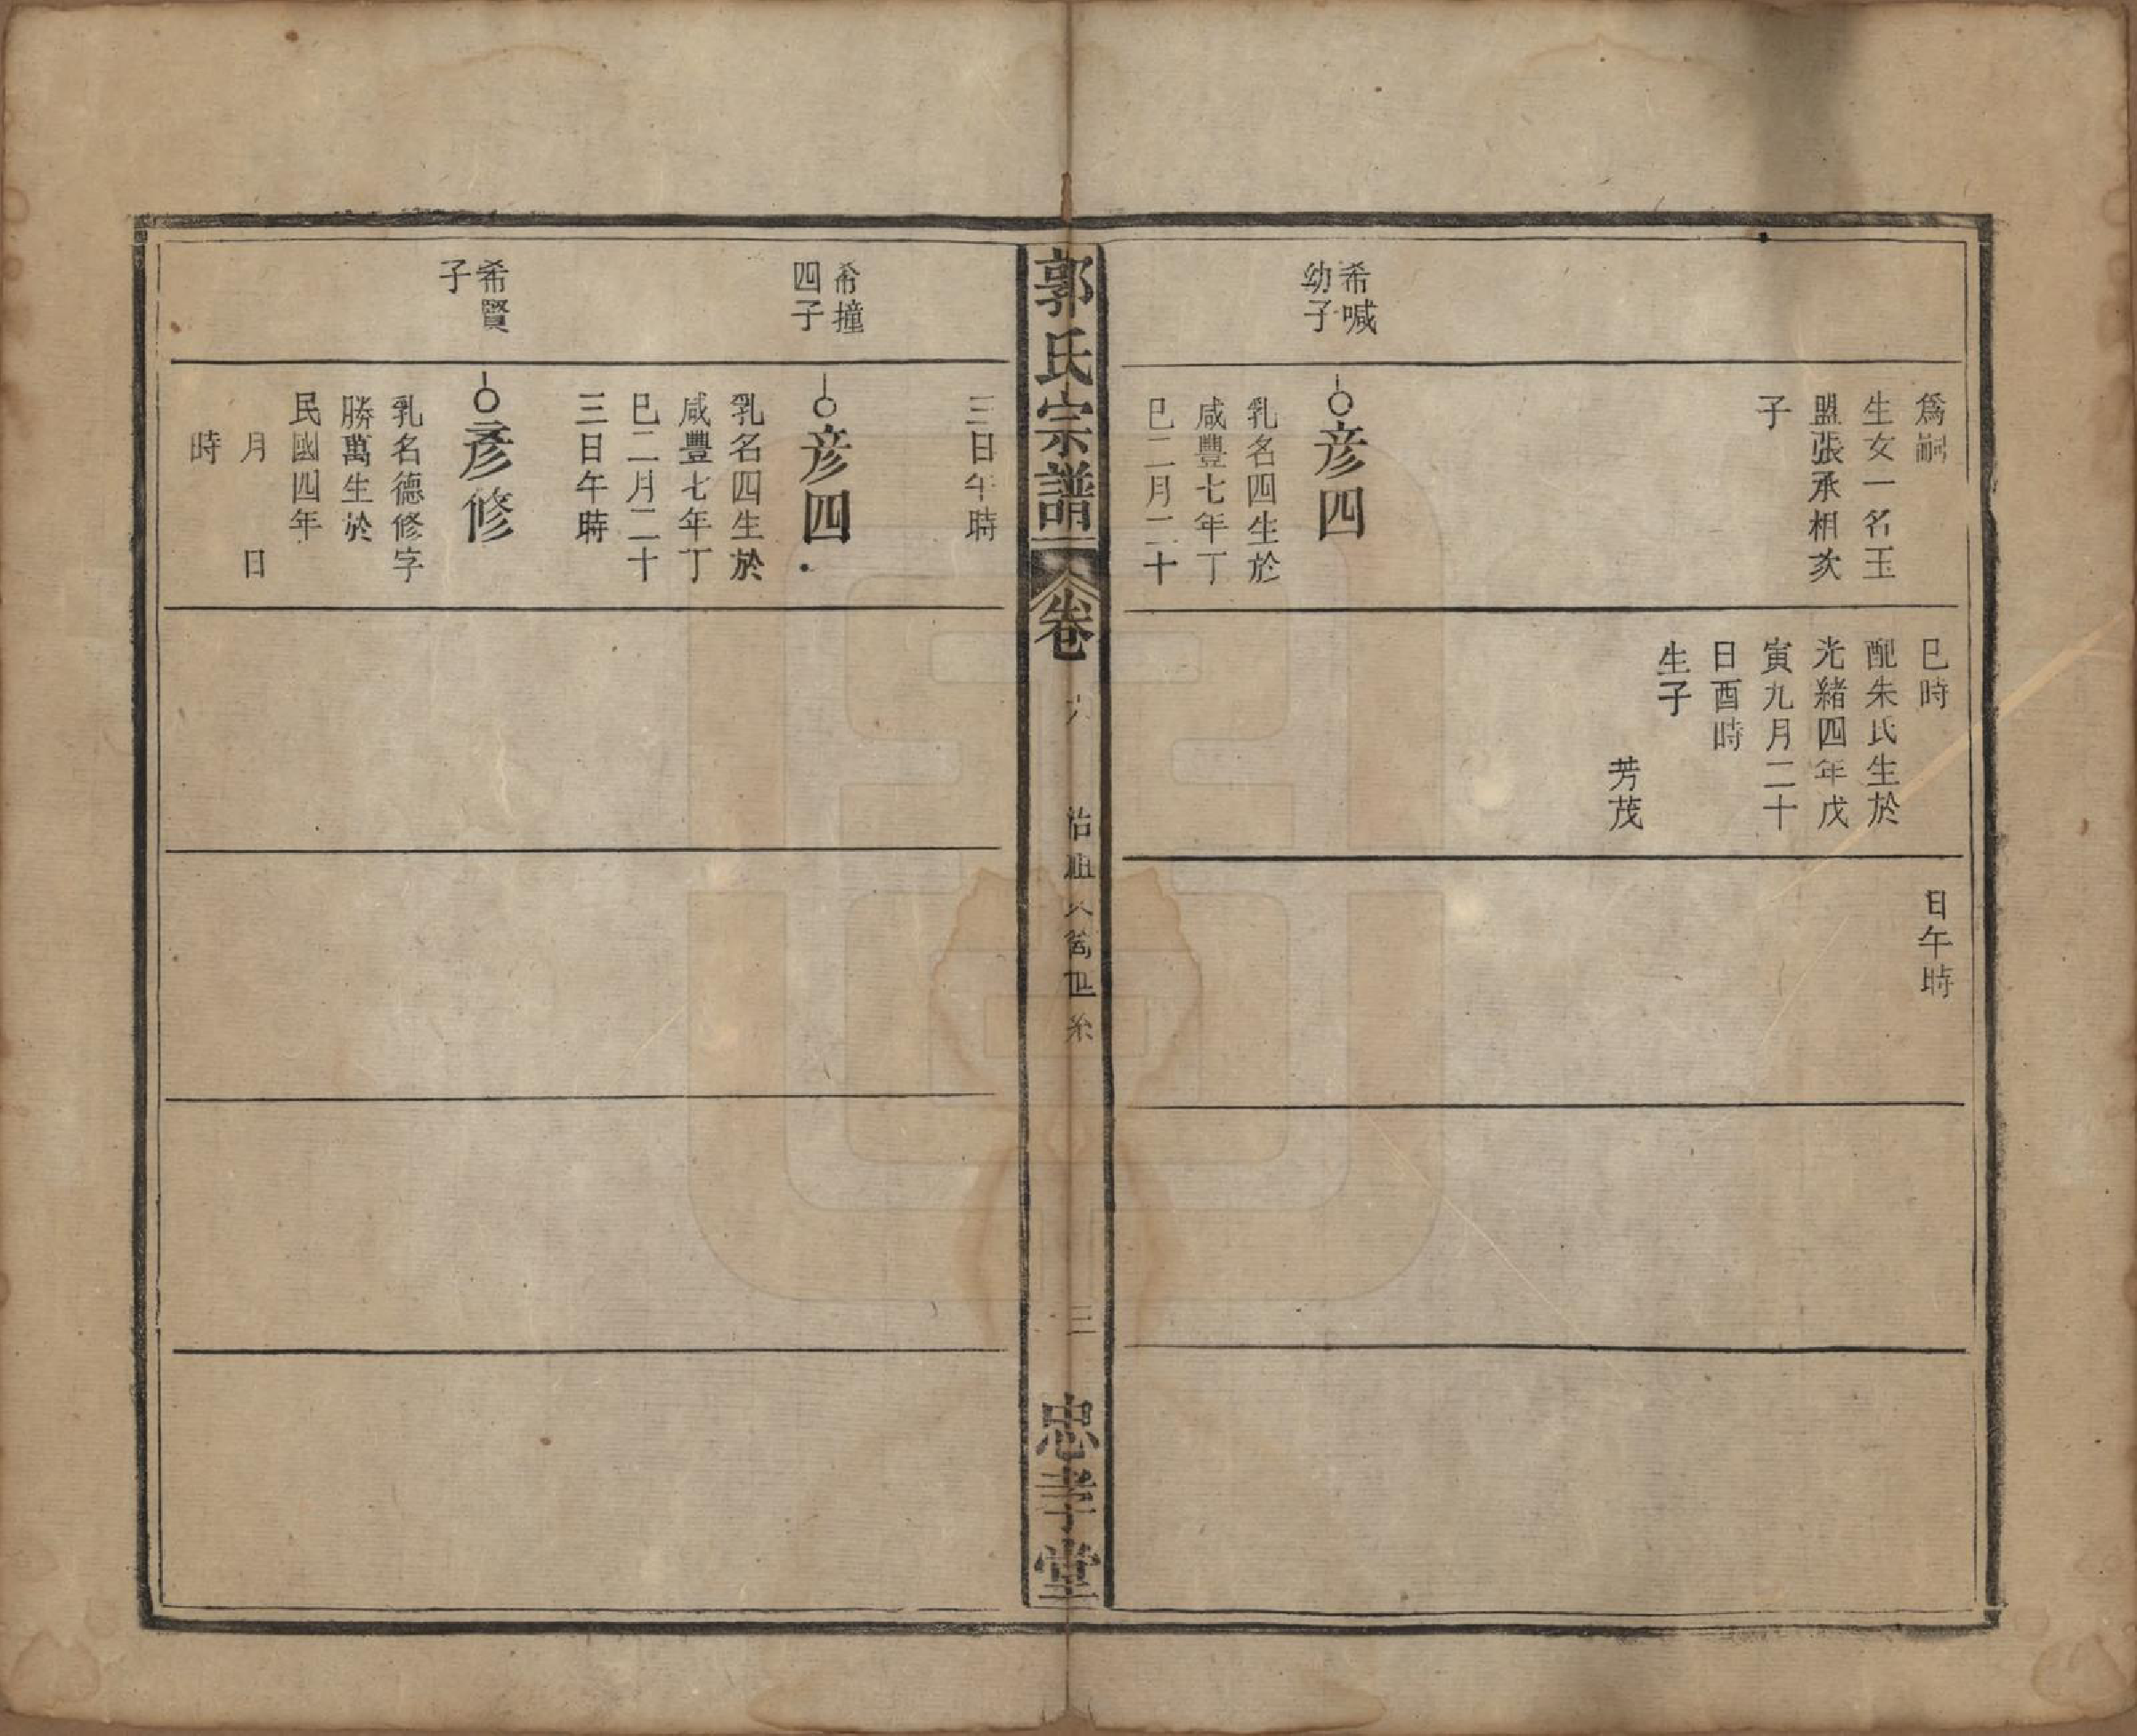 爲嗣
生女一名玉
盟張承相次
子
希喊
幼子
彦四
乳名四生於
咸豐七年丁
巳二月二十
巳時
配朱氏生於
光緒四年戊
寅九月二十
日酉時
生子
芳茂
日午時
郭氏宗譜
卷
世系
三
忠孝堂
三日午時
希撞
四子
彦四
乳名四生於
咸豐七年丁
巳二月二十
三日午時
希賢
子
彦修
乳名德修字
勝萬生於
民國四年
月 日
時